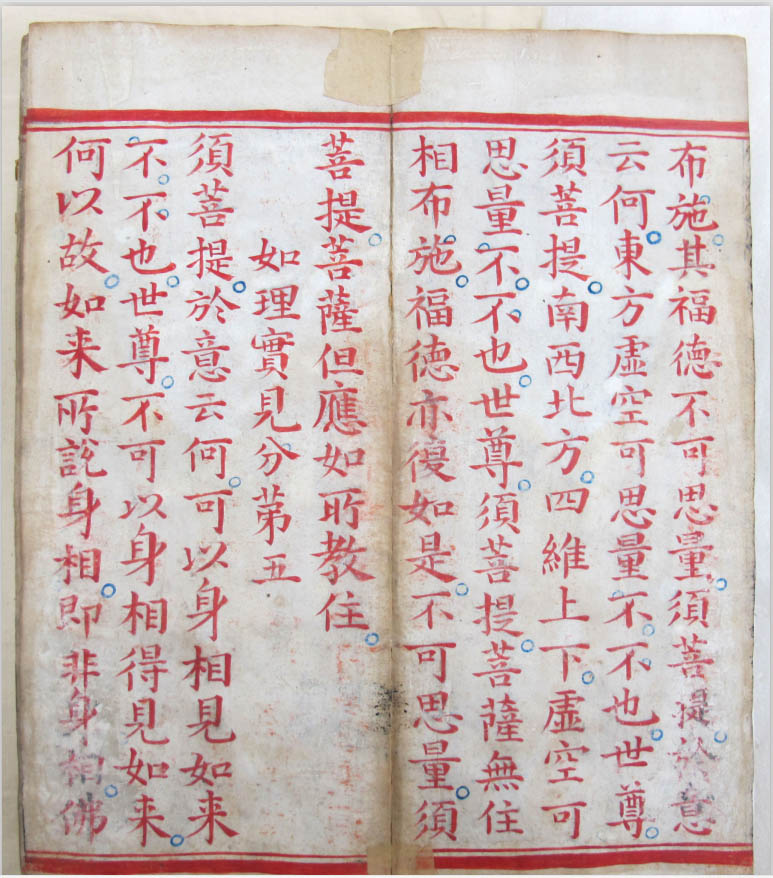 布施其福德不可思量須菩提於意
云何東方虛空可思量不不也世尊
須菩提南西北方四維上下虛空可
思量不不也世尊須菩提菩薩無住
相布施福德亦復如是不可思量須
菩提菩薩但應如所教住
如理實見分苐五
須菩提於意云何可以身相見如来
不不也世尊不可以身相得見如来
何以故如来所說身相即非身相佛